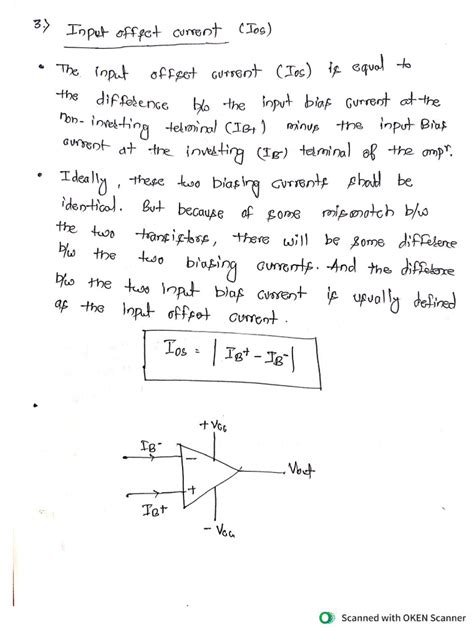 3.) Input offset current (Ios)
• The input offset current (Ios) is equal to
the difference b/w the input bias current at the
non-inverting terminal (IB+) minus the input Bias
current at the inverting (IB-) terminal of the ompr.
• Ideally, these two biasing currents shold be
identical. But because of some mismatch b/w
the two transistors, there will be some difference
b/w the two biasing currents. And the difference
b/w the two input bias current is usually defined
as the input offset current.
Ios = | IB+ - IB- |
+Vcc
IB-
−
Vout
+
IB+
- Vcc
Scanned with OKEN Scanner